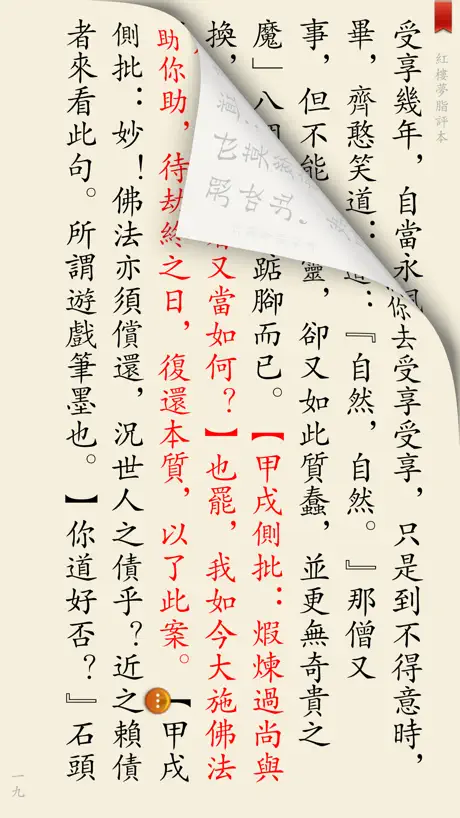 紅樓夢脂評本
受享幾年，自當永你去受享受享，只是到不得意時，
畢，齊憨笑道：道：『自然，自然。』那僧又
事，但不能靈，卻又如此質蠢，並更無奇貴之
魔」八踮腳而已。【甲戌側批：煅煉過尚與
換，又當如何？】也罷，我如今大施佛法
助你助，待劫終之日，復還本質，以了此案。【甲戌
側批：妙！佛法亦須償還，況世人之債乎？近之賴債
者來看此句。所謂遊戲筆墨也。】你道好否？』石頭
一九